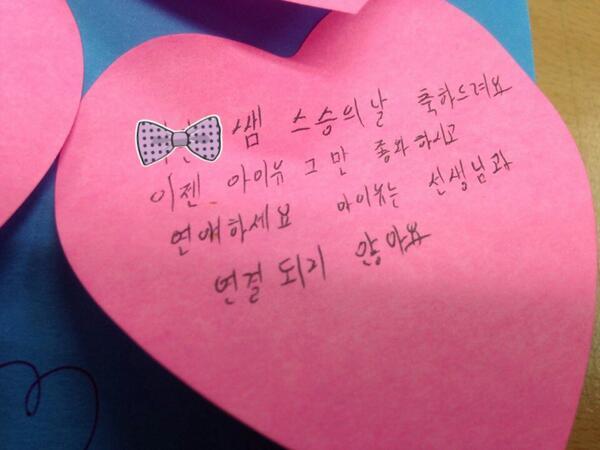 샘 스승의날 축하드려요
이젠 아이유 그만 좋와하시고
연애하세요 아이유는 선생님과
연결 되지 않아요